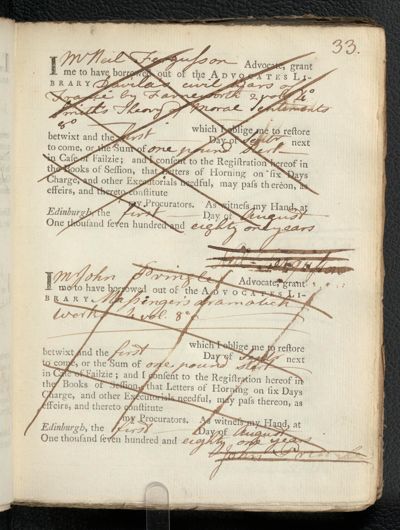 33.
I Mr Neil Fergusson Advocate, grant
me to have borrowed out of the ADVOCATES LI-
BRARY Davila's civil Wars of
France by Farneworth 2 vol. 4o
Smith's Theory of Moral Sentiments
8o
which I oblige me to restore
betwixt and the first Day of Septr next
to come, or the Sum of one pound sterl
in Case of Failzie; and I consent to the Registration hereof in
the Books of Session, that Letters of Horning on six Days
Charge, and other Executorials needful, may pass thereon, as
effeirs, and thereto constitute
my Procurators. As witness my Hand, at
Edinburgh, the first Day of August
One thousand seven hundred and eighty one years
Neil Fergusson
I Mr John Pringle Advocate, grant
me to have borrowed out of the ADVOCATES LI-
BRARY Massinger's dramatick
Works vol. 8o
which I oblige me to restore
betwixt and the first Day of Septr next
to come, or the Sum of one pound sterl
in Case of Failzie; and I consent to the Registration hereof in
the Books of Session, that Letters of Horning on six Days
Charge, and other Executorials needful, may pass thereon, as
effeirs, and thereto constitute
my Procurators. As witness my Hand, at
Edinburgh, the first Day of August
One thousand seven hundred and eighty one years
John Pringle